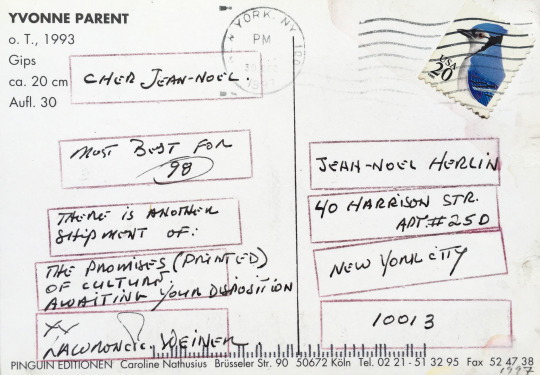 YVONNE PARENT
o. T., 1993
Gips
ca. 20 cm
Aufl. 30
NEW YORK, NY
PM
1997
USA
20
CHER JEAN-NOEL.
MOST BEST FOR
98
THERE IS ANOTHER
SHIPMENT OF:
THE PROMISES (PRINTED)
OF CULTURE
AWAITING YOUR DISPOSITION
XX
WEINER
JEAN-NOEL HERLIN
40 HARRISON STR.
APT.#25D
NEW YORK CITY
10013
PINGUIN EDITIONEN Caroline Nathusius Brüsseler Str. 90 50672 Köln Tel. 02 21 - 51 32 95 Fax 52 47 38
1997